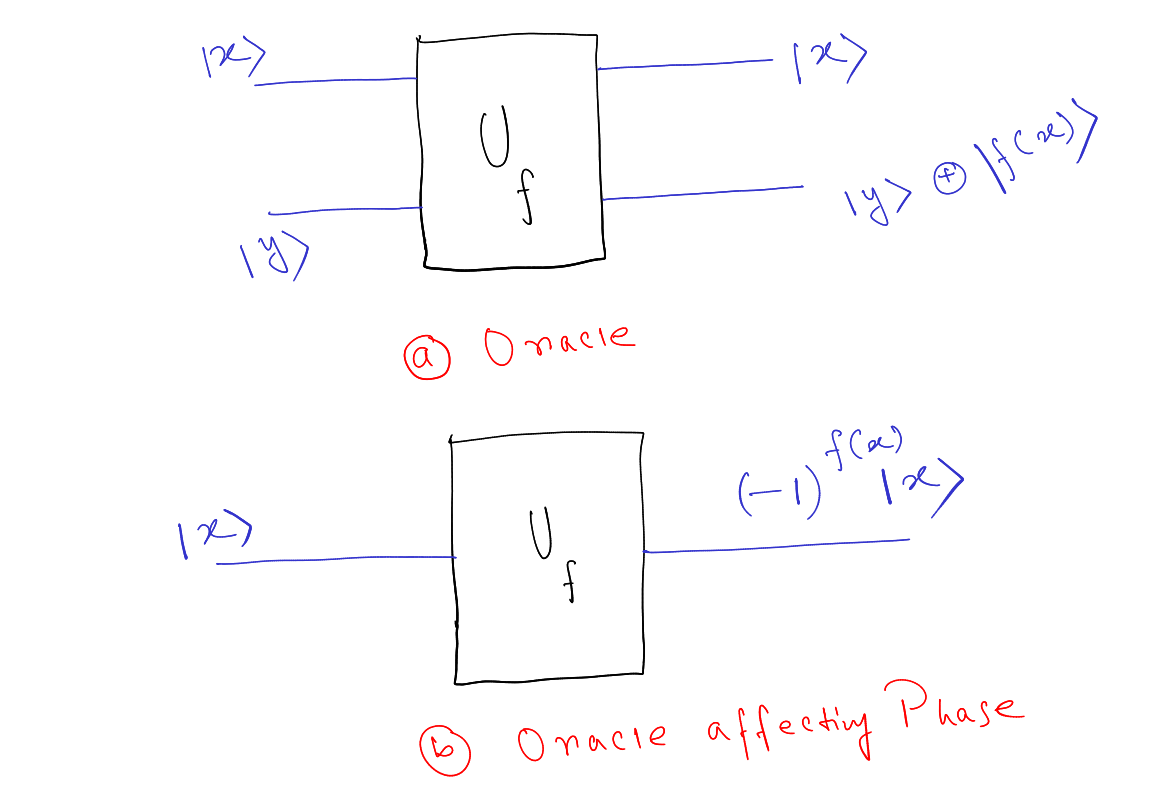 |x⟩ |x⟩
U_f
|y⟩ |y⟩ ⊕ |f(x)⟩
ⓐ Oracle
|x⟩ (-1)^{f(x)} |x⟩
U_f
ⓑ Oracle affecting Phase